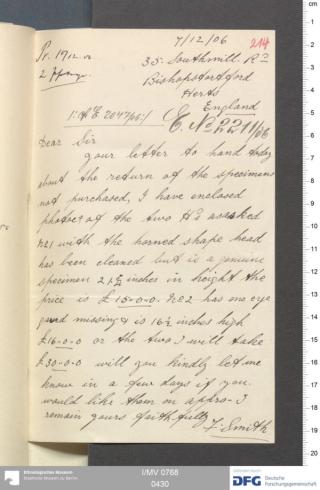 7/12/06 214
35. Southmill. Rd
Bishopstortford
Herts
England
E. No 2211/06
Dear Sir
your letter to hand today
about the return of the specimens
not purchased, I have enclosed
photos of the two Hs asked
No 1 with the horned shape head
has been cleaned but is a genuine
specimen 21 inches in height the
price is £15-0-0. No 2 has one eye
missing & is 16½ inches high
£16-0-0 or the two I will take
£30-0-0 will you kindly let me
know in a few days if you
would like them on appro-I
remain yours faithfully
F. Smith
Ethnologisches Museum
Staatliche Museen zu Berlin
I/MV 0768
0430
gefördert durch
DFG Deutsche
Forschungsgemeinschaft
cm
1
2
3
4
5
6
7
8
9
10
11
12
13
14
15
16
17
18
19
20